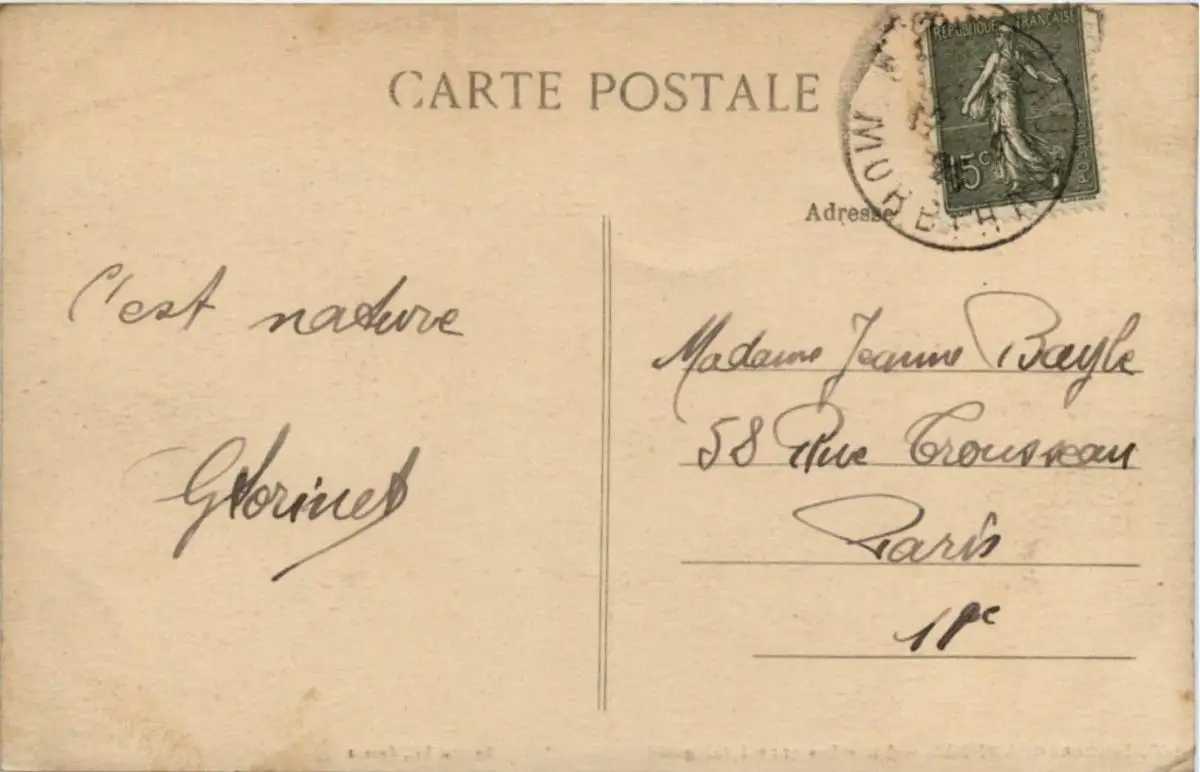 CARTE POSTALE
REPUBLIQUE FRANÇAISE
15c
POSTES
Adresse
C'est nature
Madame Jeanne Bayle
58 Rue Trousseau
Paris